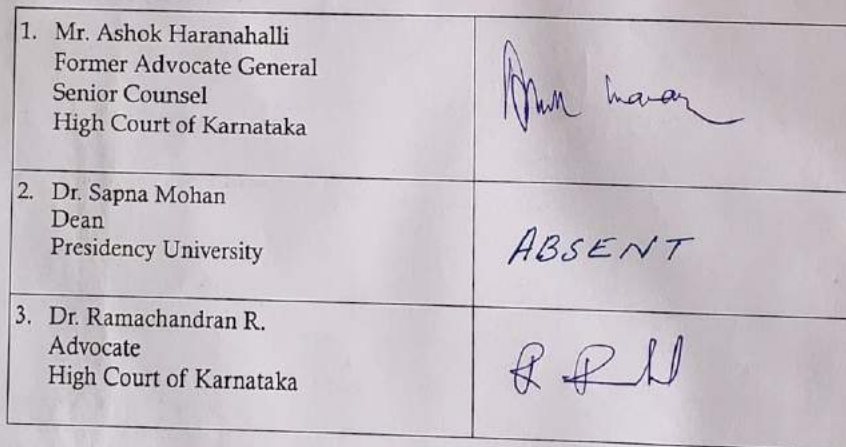 1. Mr. Ashok Haranahalli
Former Advocate General
Senior Counsel
High Court of Karnataka
2. Dr. Sapna Mohan
Dean
Presidency University
ABSENT
3. Dr. Ramachandran R.
Advocate
High Court of Karnataka